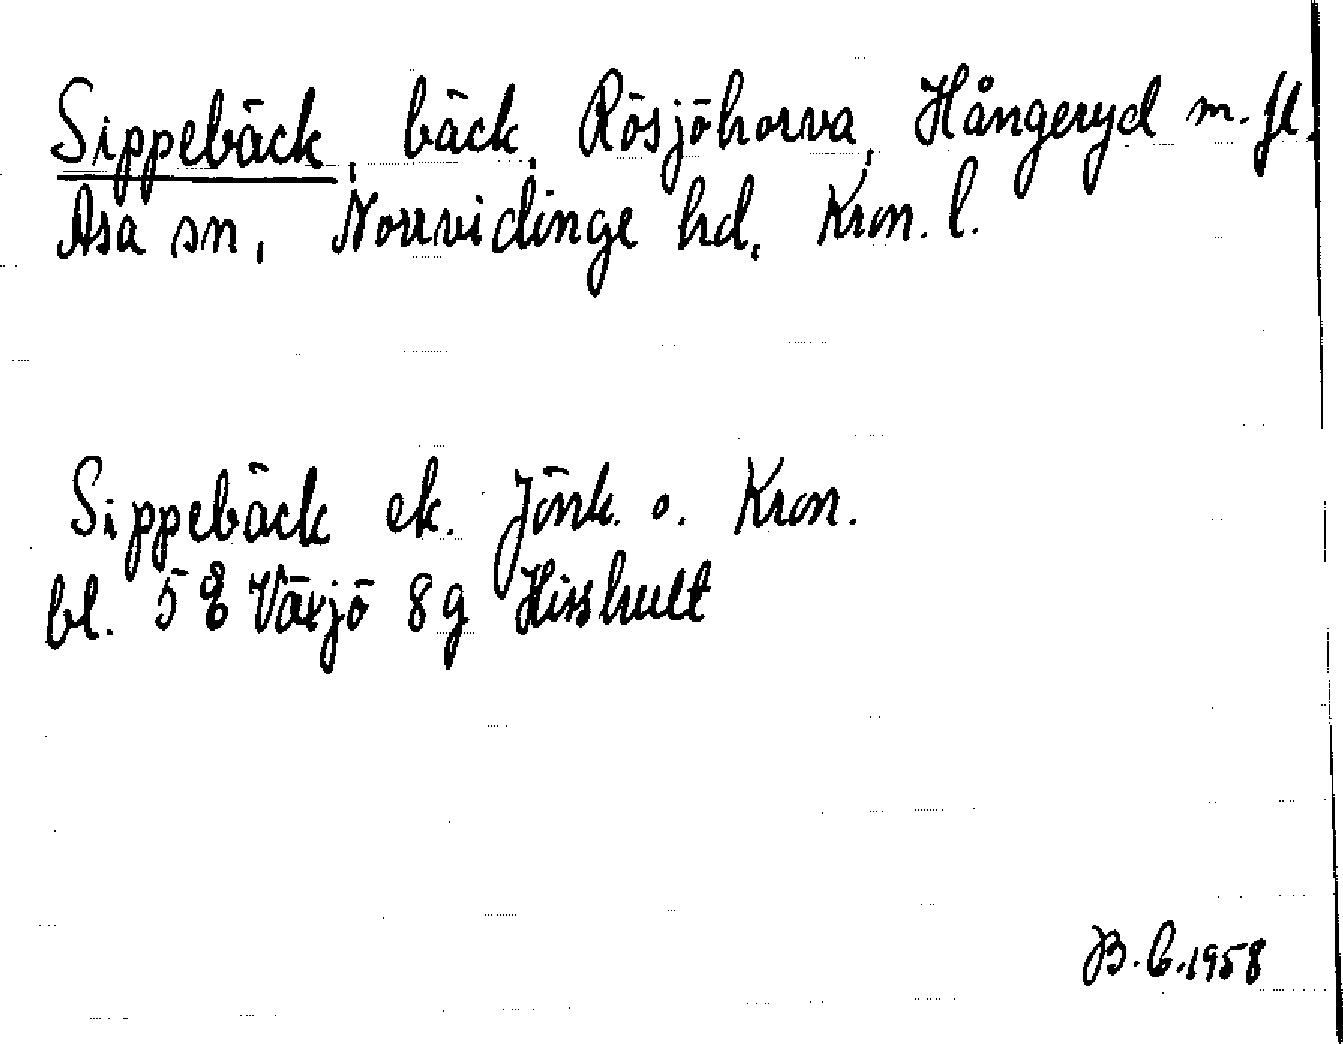 Sippebäck, bäck, Rösjöhorva, Hångeryd m. fl.
Asa sn, Norrvidinge hd, Kron. l.
Sippebäck ek. Jönk. o. Kron.
bl. 5 E Växjö 8 g Hisshult
B. C. 1958